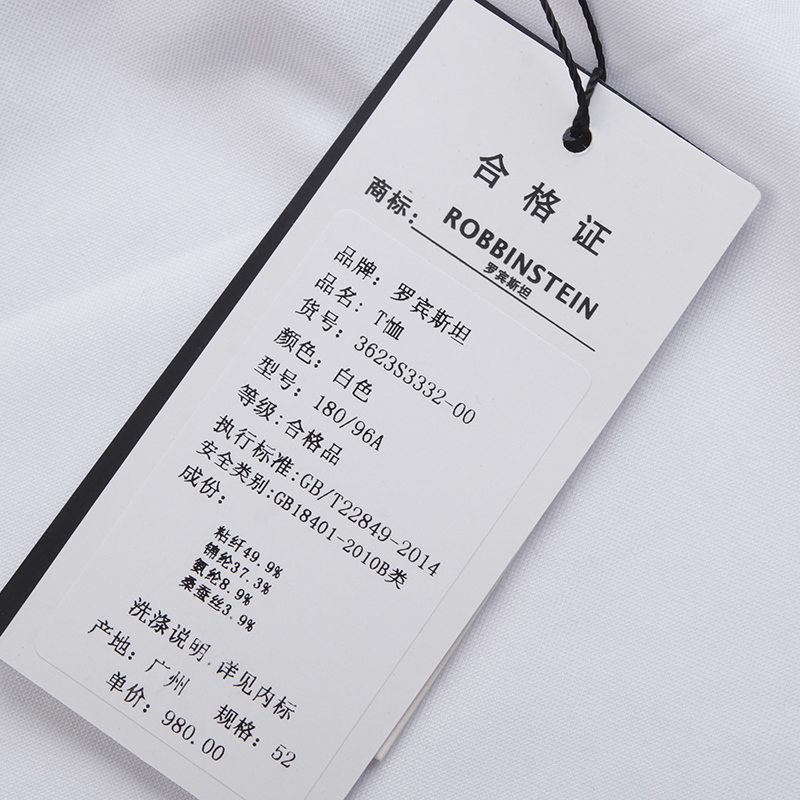 合格证
商标: ROBBINSTEIN
罗宾斯坦
品牌: 罗宾斯坦
品名: T恤
货号: 3623S3332-00
颜色: 白色
型号: 180/96A
等级: 合格品
执行标准: GB/T22849-2014
安全类别: GB18401-2010B类
成份:
粘纤49.9%
锦纶37.3%
氨纶8.9%
桑蚕丝3.9%
洗涤说明.详见内标
产地: 广州 规格: 52
单价: 980.00